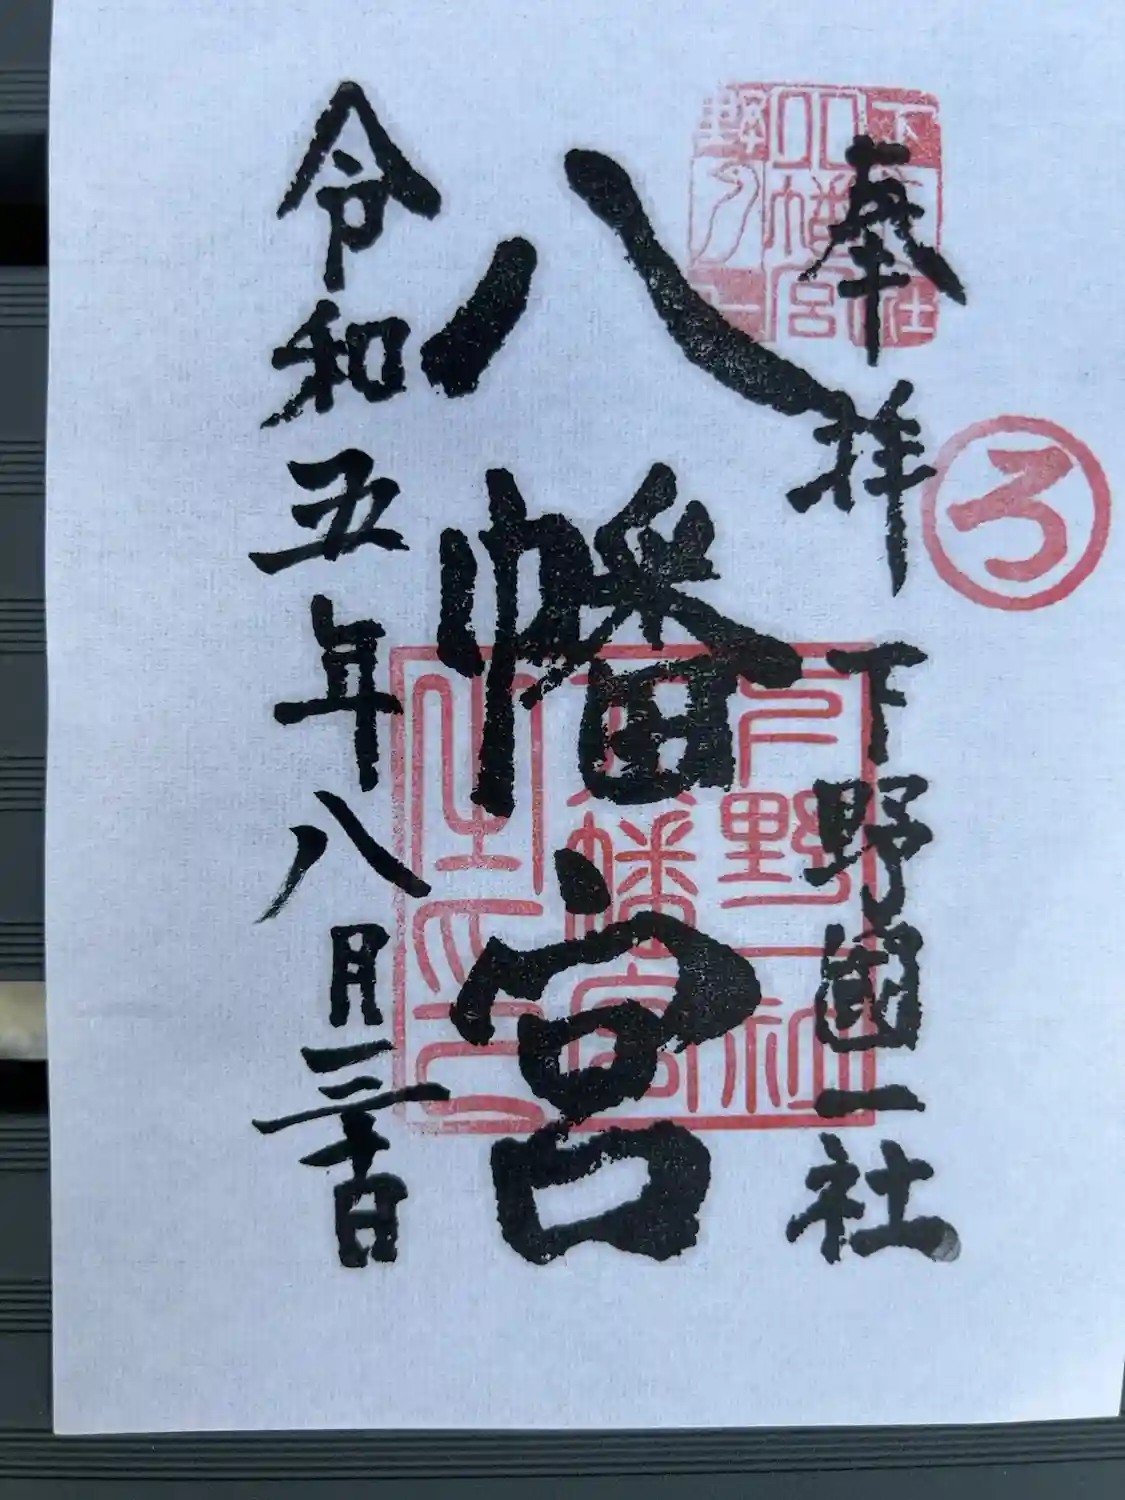 奉拝 下野國一社
八幡宮
令和五年八月二十日
ろ
八幡宮
下野一社
八幡宮
之印